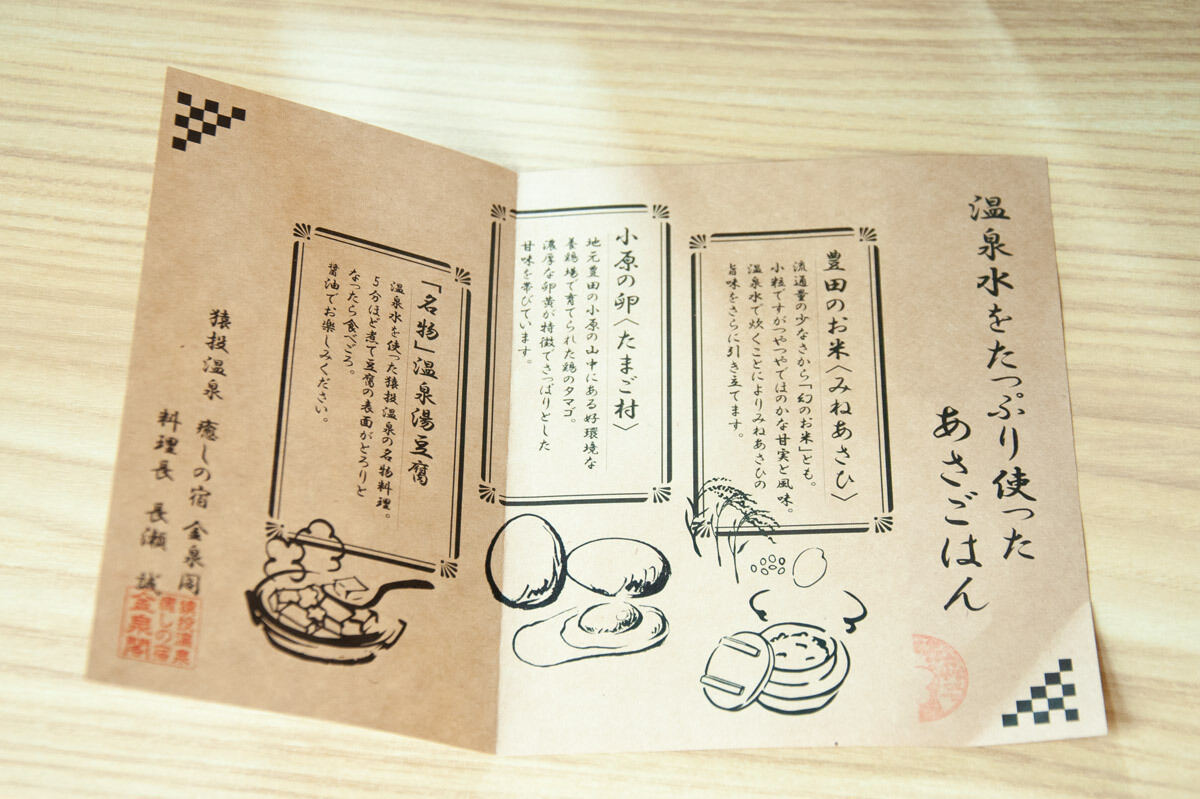 温泉水をたっぷり使った
あさごはん
豊田のお米〈みねあさひ〉
流通量の少なさから「幻のお米」とも。
小粒ですがつやつやでほのかな甘実と風味。
温泉水で炊くことによりみねあさひの
旨味をさらに引き立てます。
小原の卵〈たまご村〉
地元豊田の小原の山中にある好環境な
養鶏場で育てられた鶏のタマゴ。
濃厚な卵黄が特徴でさっぱりとした
甘味を帯びています。
「名物」温泉湯豆腐
温泉水を使った猿投温泉の名物料理。
5分ほど煮て豆腐の表面がとろりと
なったら食べごろ。
醤油でお楽しみください。
猿投温泉 癒しの宿 金泉閣
料理長 長瀬 誠
猿投温泉
癒しの宿
金泉閣